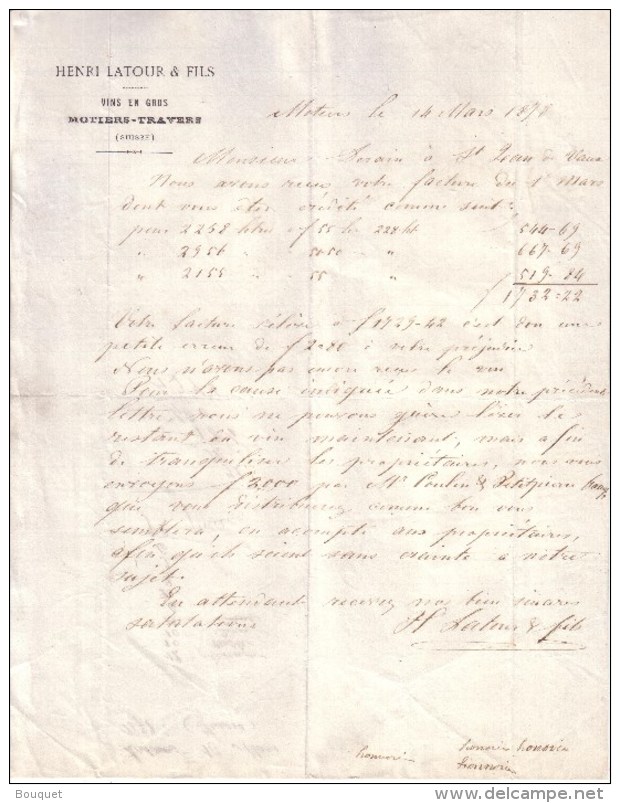 HENRI LATOUR & FILS
VINS EN GROS
MOTIERS-TRAVERS
(SUISSE)
Motiers le 14 Mars 1878
Monsieur à St Jean de Vaux
Nous avons reçu votre facture du 1r Mars
dont vous êtes crédité comme suit:
pour 2258 litres à f 55 les 228 lit f 544-69
" 2956 " " 50 " 667-69
" 2155 " " 55 " 519-84
f 1732=22
Votre facture s'élève à f 1729-42 c'est donc une
petite erreur de f 2-80 à votre préjudice
Nous n'avons pas encore reçu le vin
Pour la cause indiquée dans notre précédente
lettre nous ne pouvons guère lever le
restant du vin maintenant, mais afin
de tranquiliser les propriétaires, nous vous
envoyons f 2000 par Mr & Petitpierre
que vous distribuerez comme bon vous
semblera, en acompte aux propriétaires,
afin qu'ils soient sans crainte à notre
sujet.
En attendant recevez nos bien sincères
salutations H Latour & fils
Bouquet